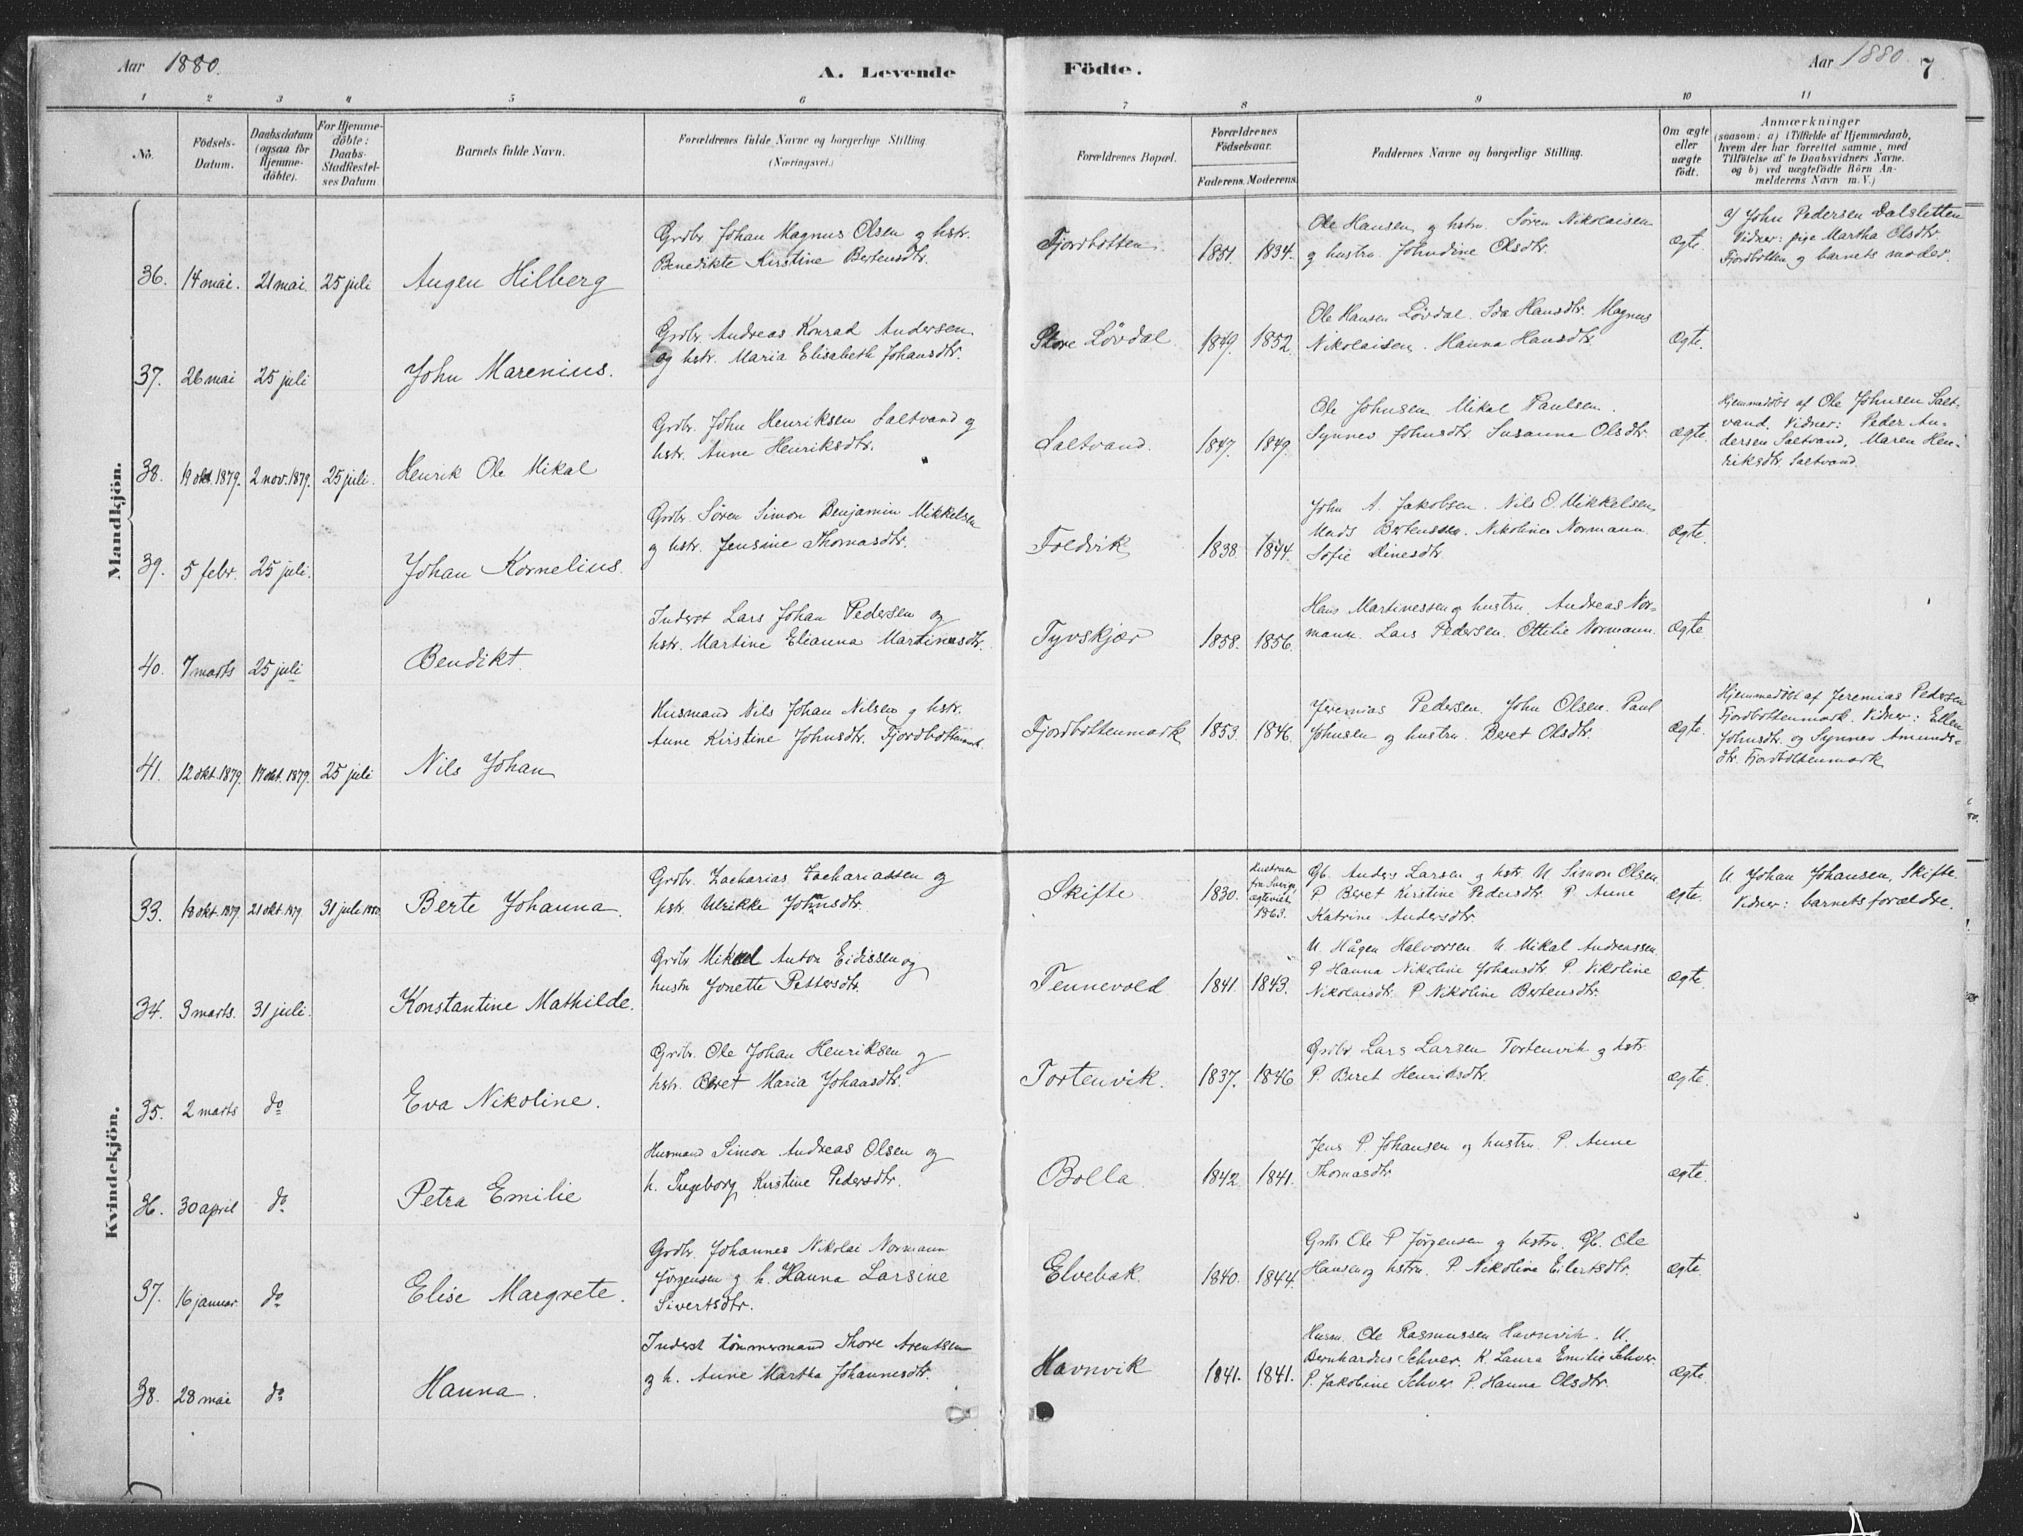 Aar 1880.
A. Levende Födte.
Aar 1880. 7.
1 2 3 4 5 6 7 8 9 10 11
No.
Födsels-Datum.
Daabsdatum (ogsaa for Hjemmedöbte).
For Hjemmedöbte: Daabs-Stadfæstelses Datum
Barnets fulde Navn.
Forældrenes fulde Navne og borgerlige Stilling (Næringsvei.)
Forældrenes Bopæl.
Forældrenes Födselsaar.
Faderens. Moderens.
Faddernes Navne og borgerlige Stilling.
Om ægte eller uægte födt.
Anmærkninger
(saasom: a) i Tilfælde af Hjemmedaab, hvem der har forrettet samme, med Tilföielse af to Daabsvidners Navne. og b) ved uægtefödte Börn Anmelderens Navn m. V.)
Mandkjön.
36. 14 mai. 21 mai. 25 juli Augen Hilberg
Grdbr. Johan Magnus Olsen og hstr.
Benedikte Kirstine Bertensdtr.
Fjordbotten. 1851. 1834.
Ole Hansen og hstru. Søren Nikolaisen
og hustru Johndine Olsdtr. Ægte.
a) John Pedersen Dalsletten
Vidner: pige Martha Olsdtr
Fjordbotten og barnets moder.
37. 26 mai 25 juli John Marenius.
Grdbr. Andreas Konrad Andersen
og hstr. Maria Elisabeth Johansdtr.
Store Løvdal. 1849. 1852.
Ole Hansen Løvdal. Ida Hansdtr. Magnus
Nikolaisen. Hanna Hansdtr. Ægte.
38. 19 okt. 1879. 2 nov. 1879. 25 juli. Henrik Ole Mikal
Grdbr. John Henriksen Saltvand og
hstr. Anne Henriksdtr.
Saltvand. 1847. 1849.
Ole Johnsen Mikal Paulsen.
Synnev Johnsdtr Susanna Olsdtr. Ægte.
Hjemmedøbt af Ole Johnsen Salt-
vand. Vidner: Peder An-
dersen Saltvand, Maren Hen-
riksdtr Saltvand.
39. 5 febr. 25 juli. Johan Kornelius.
Grdbr. Søren Simon Benjamin Mikkelsen
og hstr. Jensine Thomasdtr.
Foldvik 1838. 1844.
John A. Jakobsen. Nils O. Mikkelsen
Mads Bertensen. Nikoline Normann
Sofie Dinesdtr. Ægte.
40. 7 marts 25 juli Bendikt.
Inderst Lars Johan Pedersen og
hstr. Martine Elianna Martinusdtr.
Tyvskjær 1858. 1856.
Hans Martinessen og hustru. Andreas Nor-
mann. Lars Pedersen. Ottilie Normann. Ægte.
41. 12 okt. 1879. 17 okt. 1879. 25 juli Nils Johan
Husmand Nils Johan Nilsen og hstr.
Anne Kirstine Johnsdtr. Fjordbottenmark.
Fjordbottenmark 1853. 1846.
Jeremias Pedersen. John Olsen. Paul
Johnsen og hustru. Beret Olsdtr. Ægte.
Hjemmedøbt af Jeremias Pedersen
Fjordbottenmark. Vidner: Ellen
Johnsdtr. og Synnev Amunds-
dtr. Fjordbottenmark
Kvindekjön.
33. 18 okt 1879 21 okt. 1879 31 juli 1880. Berte Johanna.
Grdbr. Zacharias Zachariassen og
hstr. Ulrikke Johnsdtr.
Skifte 1830. Kustoven fra Sverige ægteviet 1863.
Gb. Anders Larsen og hstr. U. Simon Olsen
P Beret Kirstine Pedersdtr. P Anne
Katrine Andersdtr. Ægte.
U. Johan Johansen, Skifte.
Vidner: barnets forældre.
34. 3 marts. 31 juli. Konstantine Mathilde.
Grdbr Mikael Anton Eidissen og
hustr Jonette Pettersdtr.
Tennevold 1841. 1843.
U. Hågen Halvorsen U. Mikal Andreassen
P Hanna Nikoline Johansdtr. P. Nikoline
Nikolaisdtr. P Nikoline Bertensdtr. Ægte.
35. 2 marts do Eva Nikoline.
Grdbr. Ole Johan Henriksen og
hstr. Beret Maria Johansdtr.
Tortenvik. 1837. 1846
Grdbr Lars Larsen Tortenvik og hstr.
P. Beret Henriksdtr. ægte.
36. 30 april do. Petra Emilie
Husmand Simon Andreas Olsen og
h. Ingeborg Kirstine Pedersdtr.
Bolla. 1842 1841.
Jens P Johansen og hustru P. Anne
Thomasdtr. ægte.
37. 16 januar. do Elise Margrete.
Grdbr. Johannes Nikolai Normann
Jørgensen og h. Hanna Larsine
Sivertsdtr.
Elvebak. 1840. 1844.
Grdbr Ole P Jørgensen og hstru. Gb. Ole
Hansen og hstru. P. Nikoline Eilertsdtr. Ægte.
38. 28 mai do Hanna.
Inderst tømmermand Thore Arentsen
og h. Anne Martha Johannesdtr.
Havnvik 1841. 1841.
Husm. Ole Rasmussen Havnvik. U.
Bernhardus Schver. K. Laura Emilie Schver.
P. Jakobine Schver P. Hanna Olsdtr. Ægte.